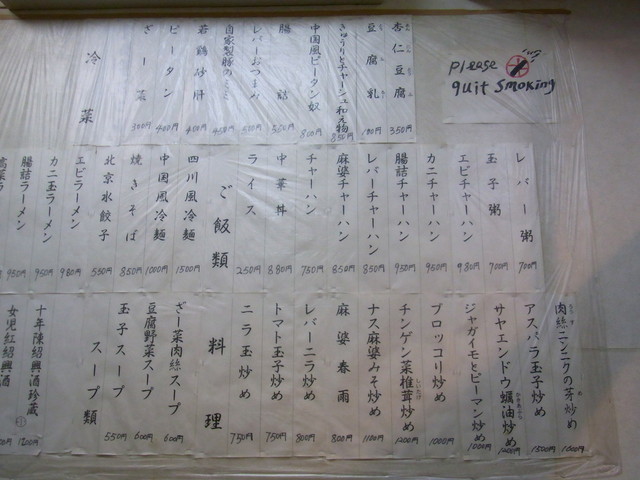 please
quit smoking
杏仁豆腐 350円
豆腐乳 100円
きゅうりとチャーシュー和え物 850円
中国風ピータン奴 800円
腸詰
レバーおつまみ
自家製豚の
若鶏砂肝 400円
ピータン 400円
ざー菜 300円
冷菜
レバー粥 700円
玉子粥 700円
エビチャーハン 980円
カニチャーハン 950円
腸詰チャーハン 930円
レバーチャーハン 850円
麻婆チャーハン 850円
チャーハン 730円
中華丼 880円
ライス 250円
ご飯類
四川風冷麺 1500円
中国風冷麺 1000円
焼きそば 850円
北京水餃子 550円
エビラーメン 980円
カニ玉ラーメン 950円
腸詰ラーメン 930円
肉絲ニンニクの芽炒め
アスパラ玉子炒め 1300円
サヤエンドウ蠣油炒め
ジャガイモとピーマン炒め 1000円
ブロッコリ炒め 1000円
チンゲン菜椎茸炒め 1200円
ナス麻婆みそ炒め 1100円
麻婆春雨 800円
レバーニラ炒め 800円
トマト玉子炒め 750円
ニラ玉炒め 750円
料理
ざー菜肉絲スープ 600円
豆腐野菜スープ 600円
玉子スープ 550円
スープ類
十年陳紹興酒珍蔵 1200円
女児紅紹興酒